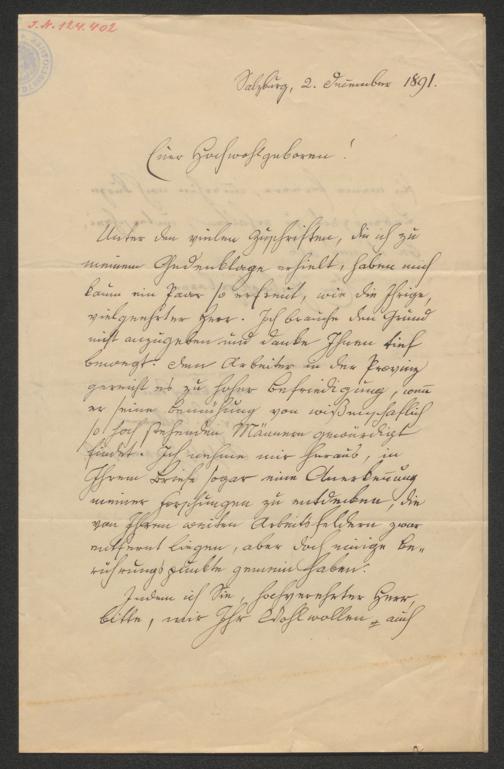 I.N. 124.402
Salzburg, 2. December 1891.
Euer Hochwohlgeboren!
Unter den vielen Zuschriften, die ich zu
meinem Gedenktage erhielt, haben mich
kaum ein Paar so erfreut, wie die Ihrige,
vielgeehrter Herr. Ich brauche den Grund
nicht anzugeben und danke Ihnen tief
bewegt. Dem Arbeiter in der Provinz
gereicht es zu hoher Befriedigung, wenn
er seine Bemühung von wissenschaftlich
so hoch stehenden Männern gewürdigt
findet. Ich nehme mir heraus, in
Ihrem Briefe sogar eine Anerkennung
meiner Forschungen zu entdecken, die
von Ihren weiten Arbeitsfeldern zwar
entfernt liegen, aber doch einige Be-
rührungspunkte gemein haben.
Indem ich Sie, hochverehrter Herr,
bitte, mir Ihr Wohlwollen auch